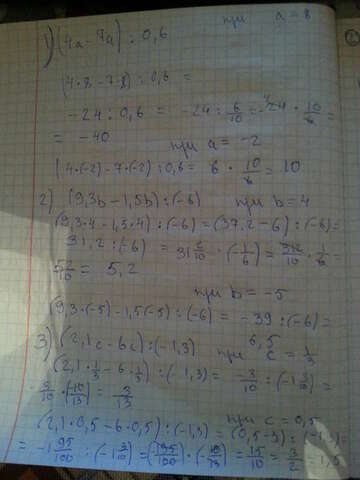 при a = 8
1) (4a - 7a) : 0,6
(4·8 - 7·8) : 0,6 =
-24 : 0,6 = -24 : 6/10 = -24 · 10/6 =
= -40
при a = -2
(4·(-2) - 7·(-2)) : 0,6 = 6 · 10/6 = 10
2) (9,3b - 1,5b) : (-6) при b = 4
(9,3·4 - 1,3·4) : (-6) = (37,2 - 6) : (-6) =
31,2 : (-6) = 31 2/10 · (-1/6) = 312/10 · 1/6 =
52/10 = 5,2
при b = -5
(9,3·(-5) - 1,5(-5)) : (-6) = -39 : (-6) =
6,5
3) (2,1c - 6c) : (-1,3) при c = 1/3
(2,1 · 1/3 - 6 · 1/3) : (-1,3) = -3/10 : (-1 3/10) =
-3/10 · (-10/13) = 3/13
при c = 0,5
(2,1·0,5 - 6·0,5) : (-1,3) = (0,5-3) : (-1,3) =
= -1 95/100 : (-1 3/10) = (195/100) · (-10/13) = 15/10 = 3/2 = 1,5